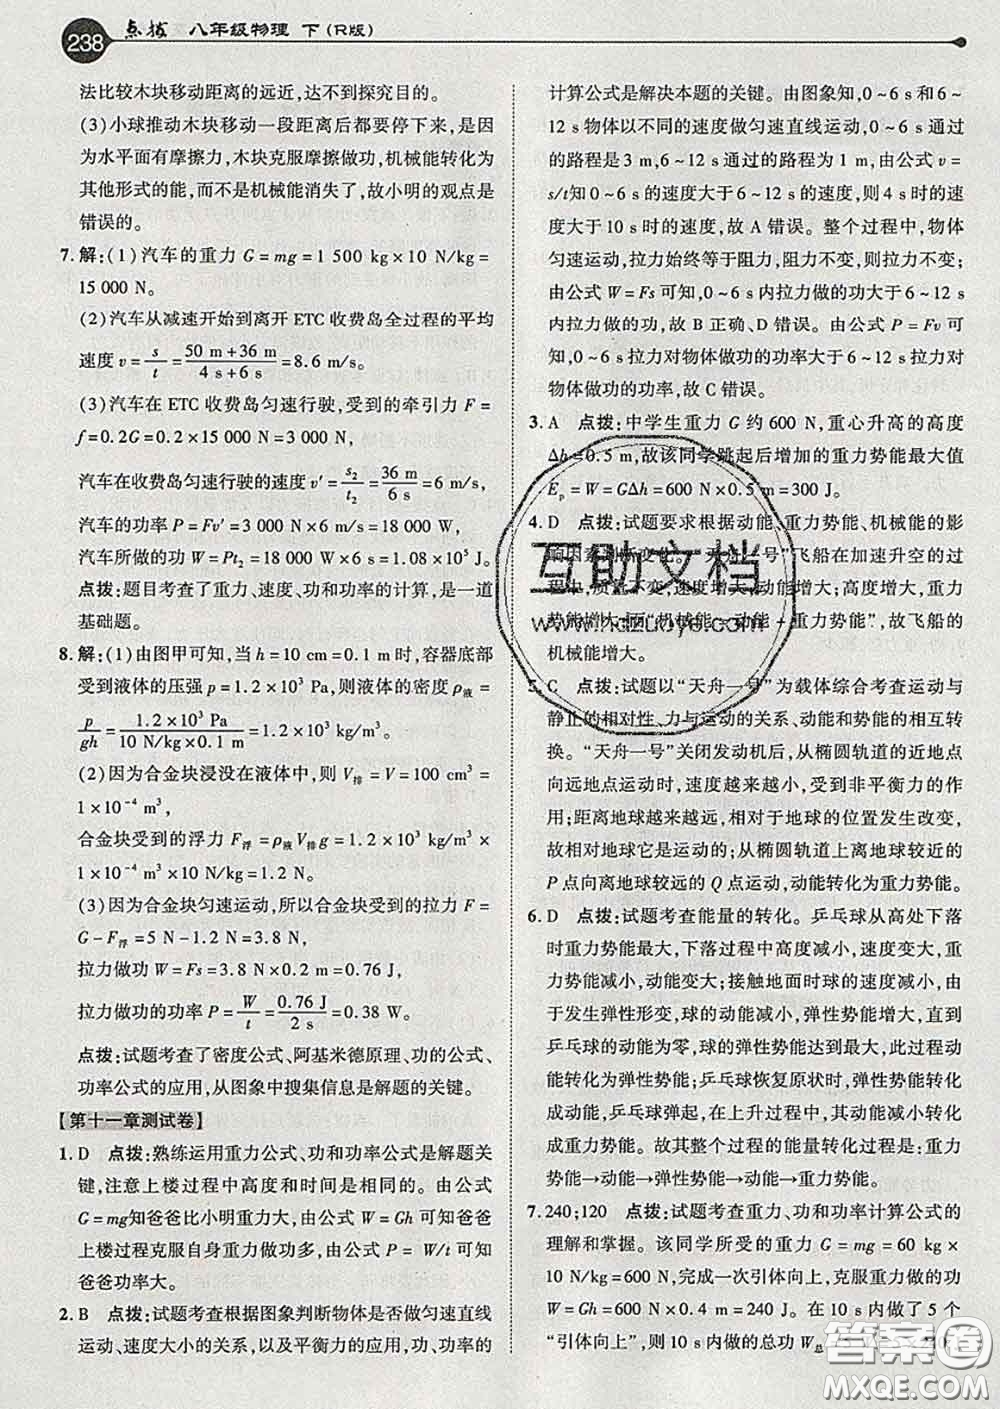 238 点拨 八年级物理 下(R版)
法比较木块移动距离的远近,达不到探究目的。
(3)小球推动木块移动一段距离后都要停下来,是因
为水平面有摩擦力,木块克服摩擦做功,机械能转化为
其他形式的能,而不是机械能消失了,故小明的观点是
错误的。
7. 解:(1)汽车的重力 G=mg=1 500 kg×10 N/kg=
15 000 N。
(2)汽车从减速开始到离开 ETC 收费岛全过程的平均
速度 v=s/t=(50 m+36 m)/(4 s+6 s)=8.6 m/s。
(3)汽车在 ETC 收费岛匀速行驶,受到的牵引力 F=
f=0.2G=0.2×15 000 N=3 000 N,
汽车在收费岛匀速行驶的速度 v′=s₂/t₂=36 m/6 s=6 m/s,
汽车的功率 P=Fv′=3 000 N×6 m/s=18 000 W,
汽车所做的功 W=Pt₂=18 000 W×6 s=1.08×10⁵ J。
点拨:题目考查了重力、速度、功和功率的计算,是一道
基础题。
8. 解:(1)由图甲可知,当 h=10 cm=0.1 m 时,容器底部
受到液体的压强 p=1.2×10³ Pa,则液体的密度 ρ液=
p/gh=1.2×10³ Pa/(10 N/kg×0.1 m)=1.2×10³ kg/m³。
(2)因为合金块浸没在液体中,则 V排=V=100 cm³=
1×10⁻⁴ m³,
合金块受到的浮力 F浮=ρ液V排g=1.2×10³ kg/m³×
1×10⁻⁴ m³×10 N/kg=1.2 N。
(3)因为合金块匀速运动,所以合金块受到的拉力 F=
G-F浮=5 N-1.2 N=3.8 N,
拉力做功 W=Fs=3.8 N×0.2 m=0.76 J,
拉力做功的功率 P=W/t=0.76 J/2 s=0.38 W。
点拨:试题考查了密度公式、阿基米德原理、功的公式、
功率公式的应用,从图象中搜集信息是解题的关键。
【第十一章测试卷】
1. D 点拨:熟练运用重力公式、功和功率公式是解题关
键,注意上楼过程中高度和时间是相同的。由公式
G=mg知爸爸比小明重力大,由公式 W=Gh可知爸爸
上楼过程克服自身重力做功多,由公式 P=W/t可知
爸爸功率大。
2. B 点拨:试题考查根据图象判断物体是否做匀速直线
运动、速度大小的关系,以及平衡力的应用,功、功率的
计算公式是解决本题的关键。由图象知,0~6 s 和 6~
12 s 物体以不同的速度做匀速直线运动,0~6 s 通过
的路程是 3 m,6~12 s 通过的路程为 1 m,由公式 v=
s/t知 0~6 s 的速度大于 6~12 s 的速度,则 4 s 时的速
度大于 10 s 时的速度,故 A 错误。整个过程中,物体
匀速运动,拉力始终等于阻力,阻力不变,则拉力不变;
由公式 W=Fs 可知,0~6 s 内拉力做的功大于 6~12 s
内拉力做的功,故 B 正确、D 错误。由公式 P=Fv 可
知,0~6 s 拉力对物体做功的功率大于 6~12 s 拉力对
物体做功的功率,故 C 错误。
3. A 点拨:中学生重力 G 约 600 N,重心升高的高度
Δh=0.5 m,故该同学跳起后增加的重力势能最大值
Ep=W=GΔh=600 N×0.5 m=300 J。
4. D 点拨:试题要求根据动能、重力势能、机械能的影
响因素判断变化。“天舟一号”飞船在加速升空的过
程中,质量不变,速度增大,动能增大;高度增大,重力
势能增大;而“机械能=动能+重力势能”,故飞船的
机械能增大。
5. C 点拨:试题以“天舟一号”为载体综合考查运动与
静止的相对性、力与运动的关系、动能和势能的相互转
换。“天舟一号”关闭发动机后,从椭圆轨道的近地点
向远地点运动时,速度越来越小,受到非平衡力的作
用;距离地球越来越远,相对于地球的位置发生改变,
故相对地球它是运动的;从椭圆轨道上离地球较近的
P 点向离地球较远的 Q 点运动,动能转化为重力势能。
6. D 点拨:试题考查能量的转化。乒乓球从高处下落
时重力势能最大,下落过程中高度减小,速度变大,重
力势能减小,动能变大;接触地面时球的速度减小,
由于发生弹性形变,球的动能减小,弹性势能增大,直到
乒乓球的动能为零,球的弹性势能达到最大,然后弹性
势能转化为动能;乒乓球恢复原状时,弹性势能为零,
乒乓球弹起,在上升过程中,动能减小转化为重力势能。
故其整个过程的能量转化过程是:重力
势能→动能→弹性势能→动能→重力势能。
7. 240;120 点拨:试题考查重力、功和功率计算公式的
理解和掌握。该同学所受的重力 G=mg=60 kg×
10 N/kg=600 N,完成一次引体向上,克服重力做的功
W=Gh=600 N×0.4 m=240 J。在 10 s 内做了 5 个
“引体向上”,则 10 s 内做的总功 W总
互助文档
www.hdzuoye.com
答案圈
MXQE.COM